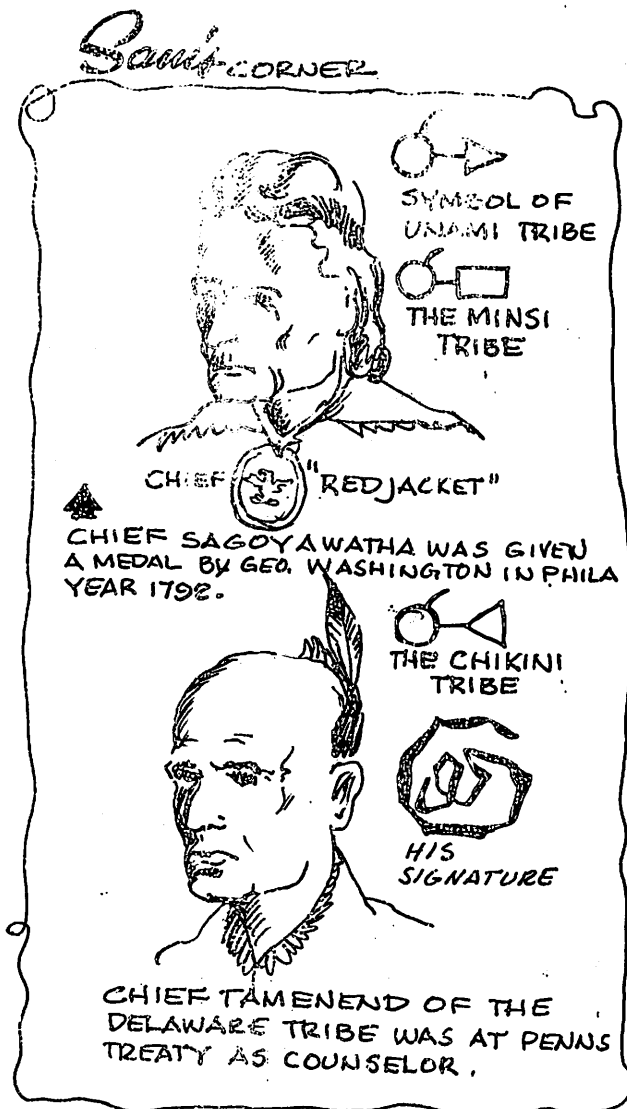 Sam's CORNER
SYMBOL OF
UNAMI TRIBE
THE MINSI
TRIBE
CHIEF "RED JACKET"
CHIEF SAGOYAWATHA WAS GIVEN
A MEDAL BY GEO. WASHINGTON IN PHILA
YEAR 1792.
THE CHIKINI
TRIBE
HIS
SIGNATURE
CHIEF TAMENEND OF THE
DELAWARE TRIBE WAS AT PENNS
TREATY AS COUNSELOR.